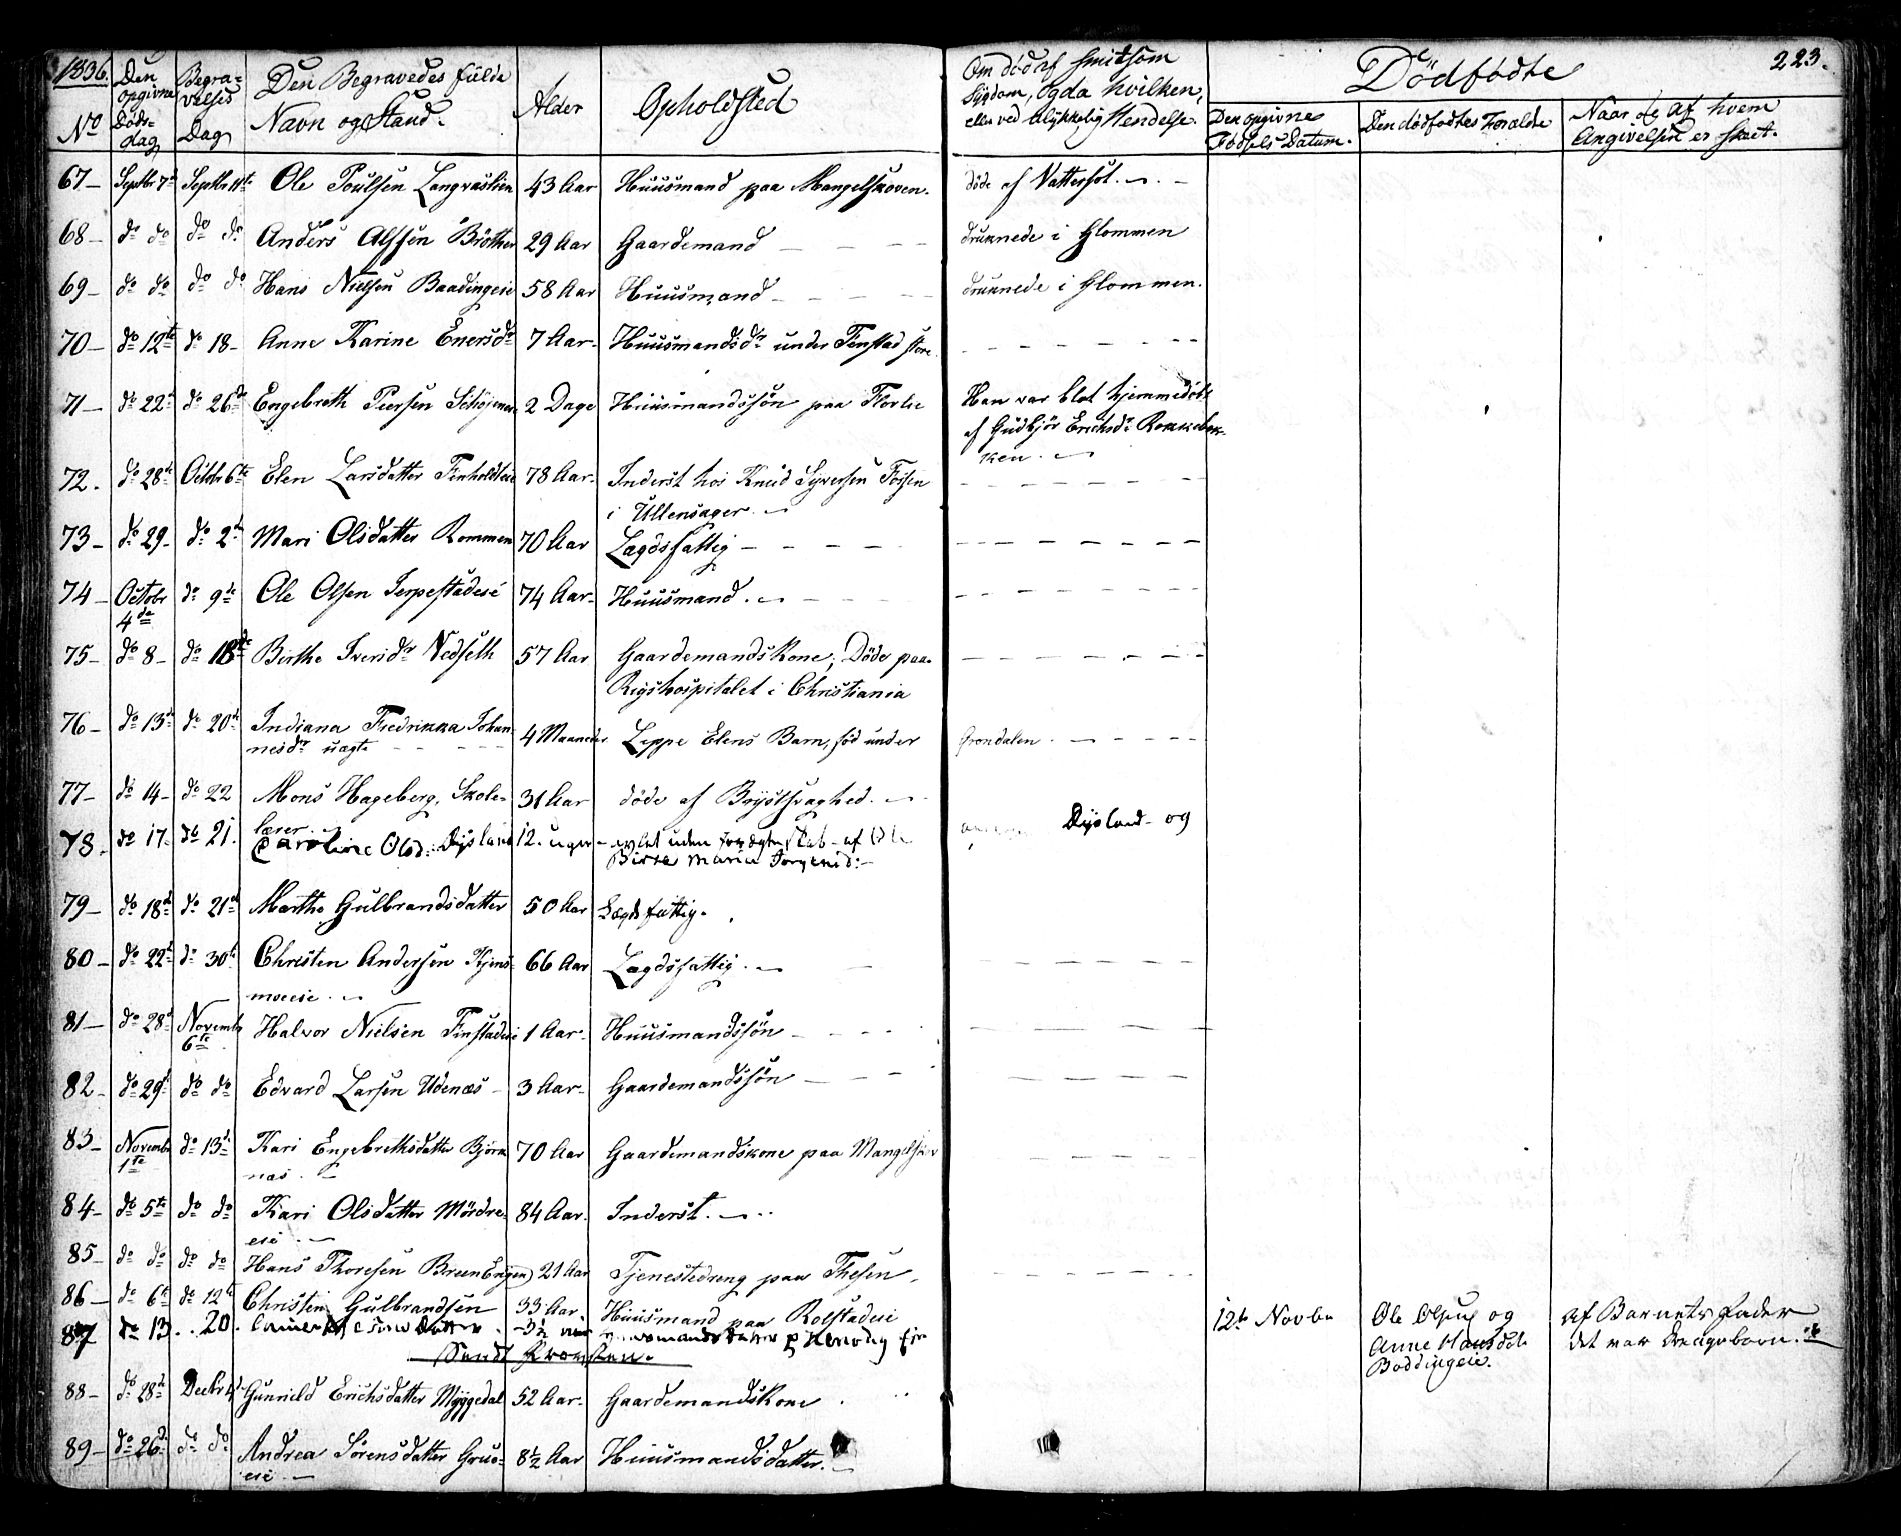 1836.
No
Den opgivne Døds-dag
Begra-velses Dag
Den Begravedes fulde Navn og Stand.
Alder
Opholdsted
Om død af smitsom Sygdom, og da hvilken, eller ved ulykkelig Hendelse.
Dødfødte
223.
Den opgivne Fødsels Datum.
Den dødfødtes Forældre
Naar og af hvem Angivelsen er skeet.
67 - Septbr 7de Septbr 11te Ole Poulsen Langrastien 43 Aar Huusmand paa Mangelskoven. døde af Vattersot.
68 - do do do do Anders Alfsen Bröther 29 Aar Gaardemand druknede i Glommen
69 - do do do do Hans Nielsen Baadingeie 58 Aar Huusmand druknede i Glommen.
70 - do 12te do 18 - Anne Karine Enersdr 7 Aar Huusmandsdr under Finstad store
71 - do 22de do 26de Engebreth Peersen 2 Dage Huusmandssøn paa Han var blot hjemmedøbt
af Gudbjør Erichsdr Rokkebek-
ken.
72. do 28de Octbr 6te Elen Larsdatter Finholdteie 78 Aar Inderst hos Knud Syversen Fossen
i Ullensager.
73 - do 29 - do 2de Mari Olsdatter Rommen 70 Aar Lægdsfattig
74 - Octobr 4de do 9de Ole Olsen Serpestadeie 74 Aar Huusmand.
75 - do 8 - do 18de Birthe Iversdr Nedseth 57 Aar Gaardemandskone; Døde paa
Rigshospitalet i Christiania
76 - do 13de do 20de Indiana Fredrikka Johan-
nesdr uægte 4 Maaneder Leppe Elens Barn, fød under Grøndalen.
77 - do 14 - do 22 Mons Hageberg, Skole-
lærer 31 Aar døde af Brystsvaghed.
78. do 17. do 21. Caroline Olsd: Dysland 12. uger - avlet uden for ægteskab - af Ole Dysland - og
Birte Maria Jorgensd:
79 - do 18de do 21de Marthe Gulbrandsdatter 50 Aar Lægdsfattig.
80 - do 22de do 30te Christen Andersen Kjens-
moeeie. 66 Aar Lægdsfattig.
81 - do 28de Novembr 6te Halvor Nielsen Finstadeie 1 Aar Huusmandssøn
82 - do 29de do do Edvard Larsen Udenæs 3 Aar Gaardemandssøn
83 - Novembr 1ste do 13de Kari Engebrethsdatter Björk-
næs. 70 Aar Gaardemandskone paa Mangelskov
84 - do 5te do do Kari Olsdatter Mördre-
eie. 84 Aar Inderst.
85 do do do do Hans Thoresen Breen Engen 21 Aar Tjenestedreng paa Thesen
86 - do 6te do 12te Christen Gulbrandsen 33 Aar Huusmand paa Rolstadeie
12te Novbr Ole Olsen og
Anne Hansdtr
Boddingeie.
af Barnets Fader
det var Drengebarn.
87 do 13. . 20.
88 - do 28de Decbr Gunnild Erichsdatter Myggedal 52 Aar Gaardemandskone
89 - do 26de do do Andrea Sörensdatter Grue-
eie 8½ Aar Huusmandsdatter.